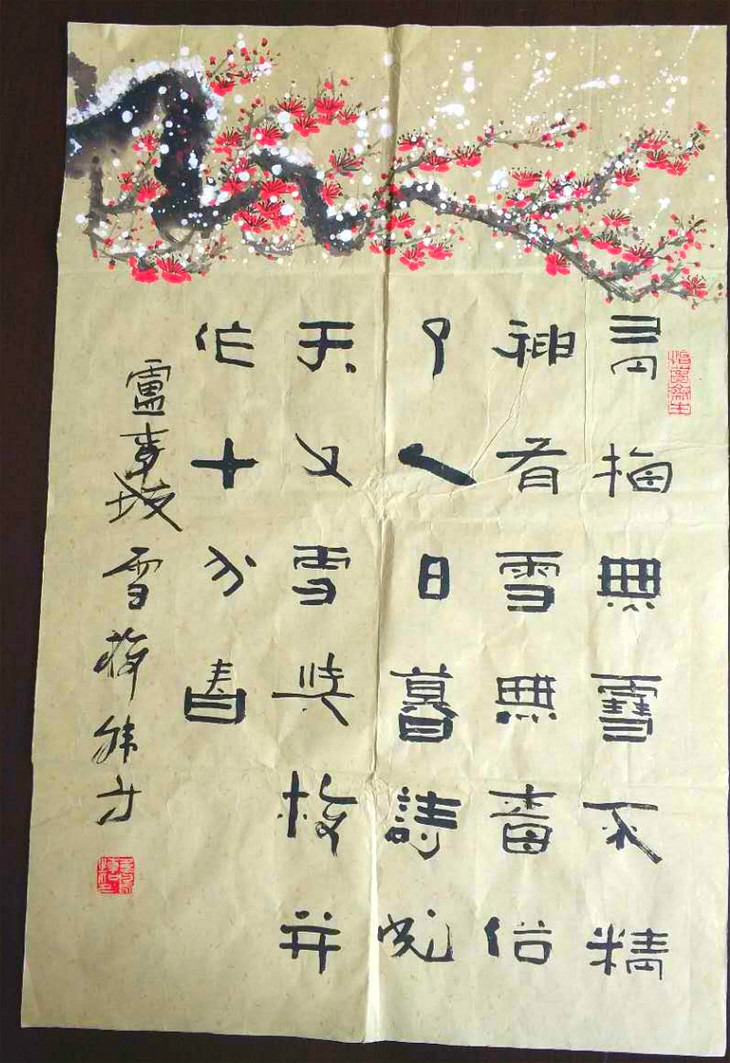 有梅無雪不精
神有雪無俗
了人日暮詩成
天又雪與梅并
作十分春
盧坡雪